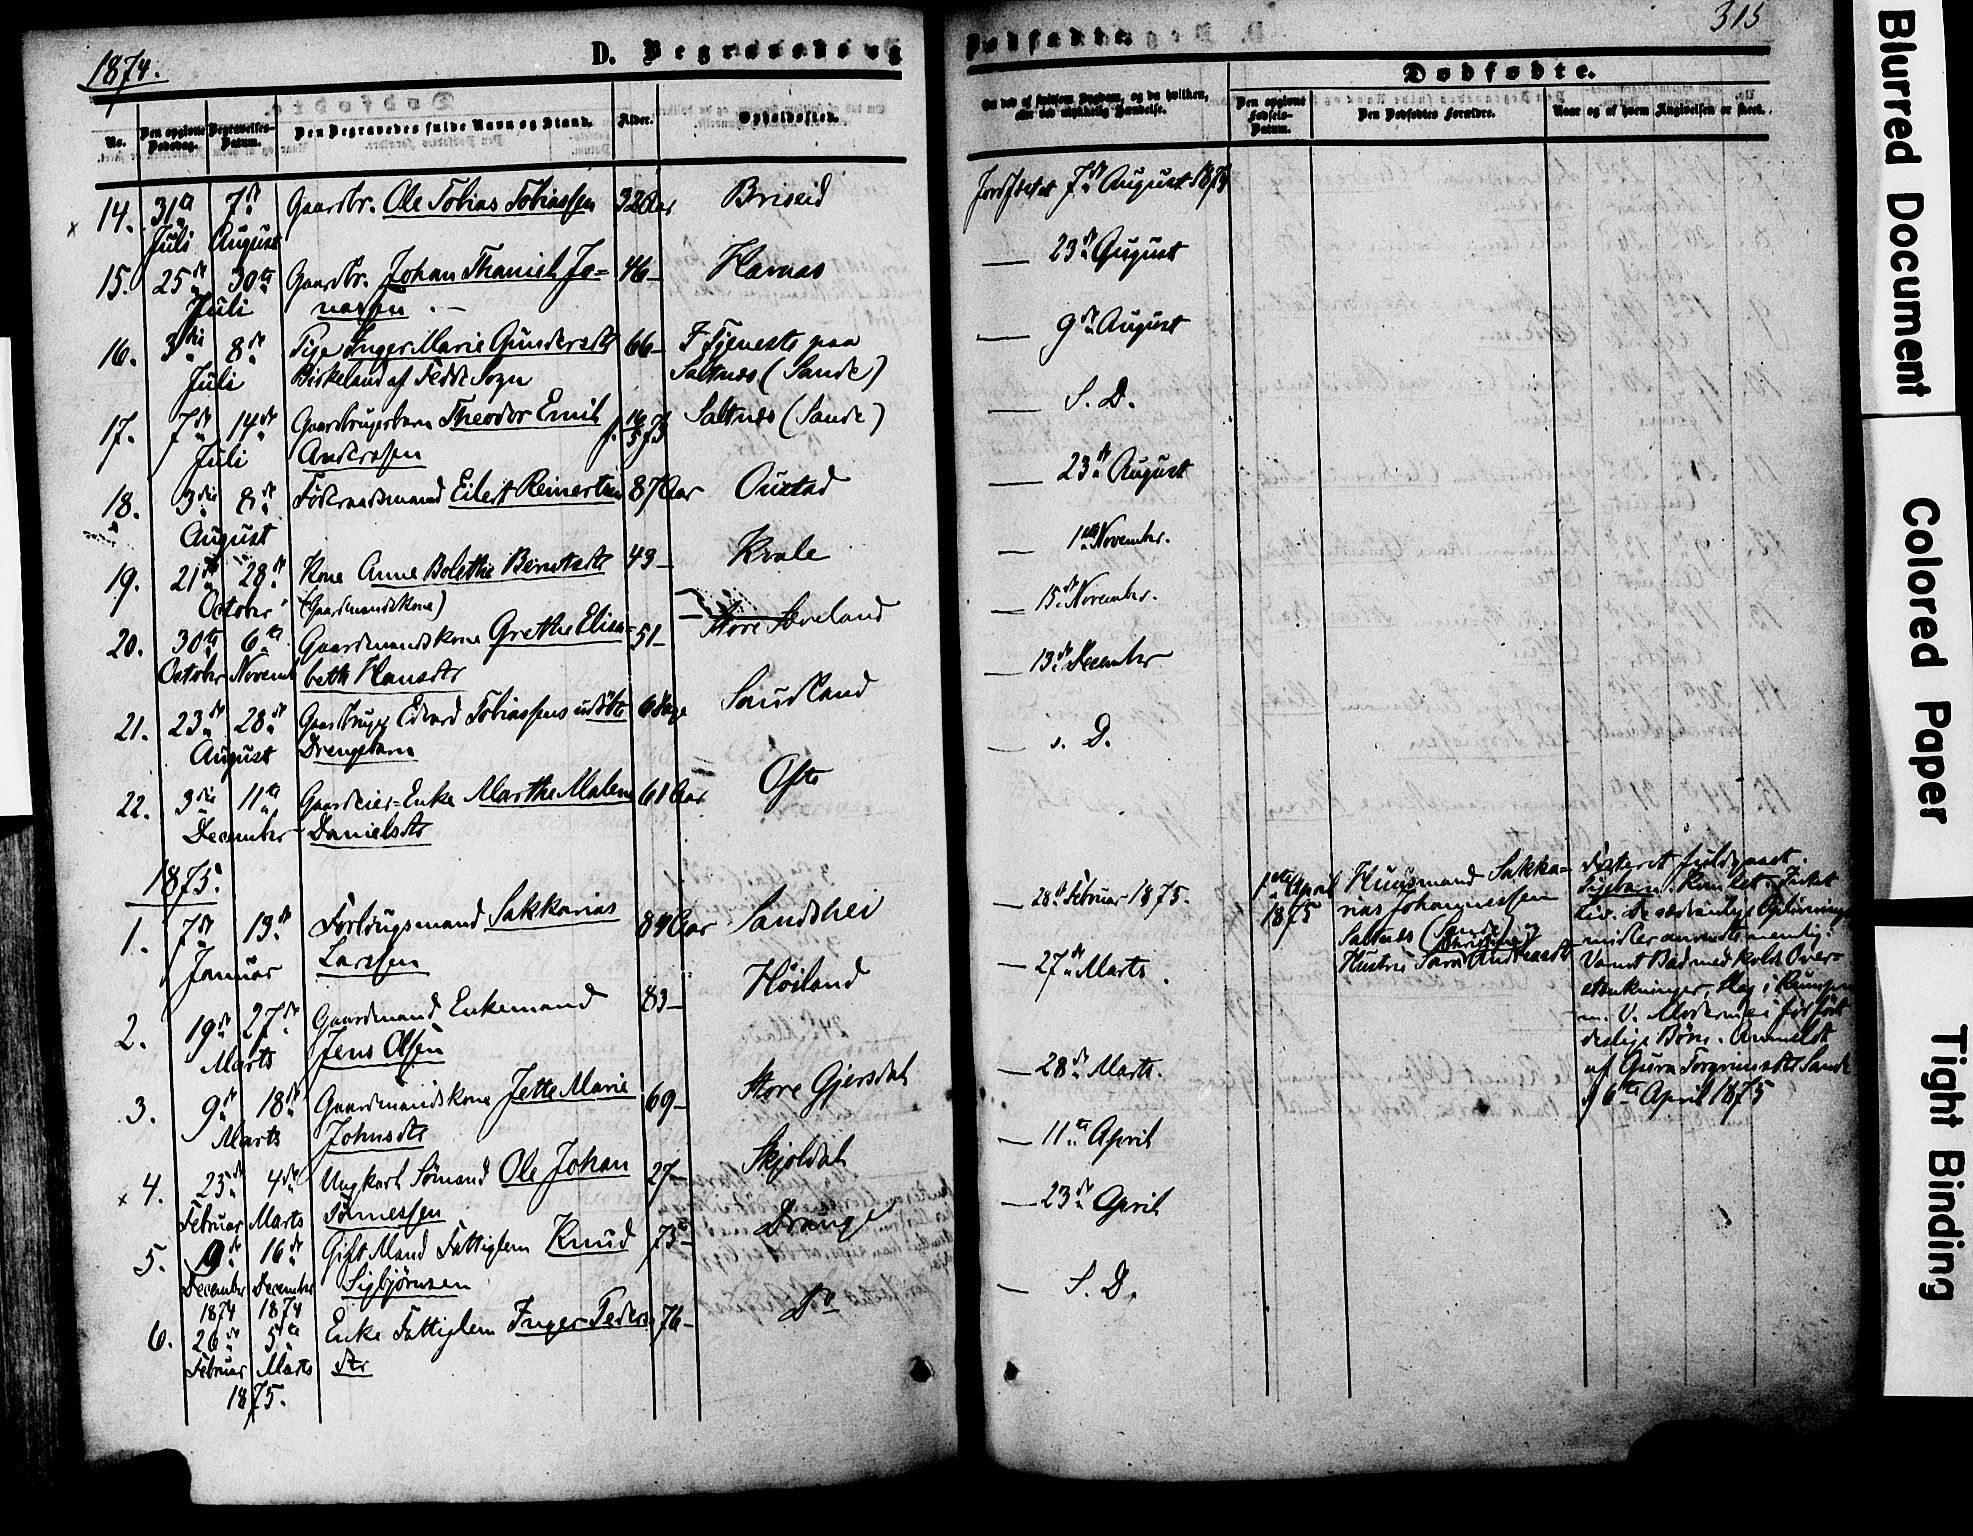 1874.
D. Begravede og
No.
Den opgivne Dødsdag.
Begravelses-Datum.
Den Begravedes fulde Navn og Stand.
Alder.
Opholdssted.
14. 31te 7de Gaardbr. Ole Tobias Tobiassen 32 Aar Briseid
Juli August
15. 25de 30te Gaardbr. Johan Thaniel Jo= 46 –
Juli nassen
16. 3die 8de Pige Inger Marie Gundersdtr 66 – I Tjeneste paa
Juli Birkeland af Fedde Sogn Saltnes (Sande)
17. 7de 14de Gaardbrugerbarn Theodor Emil f. 16/5 73 Saltnes (Sande)
Juli Andersen
18. 3die 8de Føderaadsmand Eilert Reinertsen 87 Aar
August
19. 21de 28de Kone Anne Bolethe Berntsdtr 43 –
October (Gaardmandskone)
20. 30te 6te Gaardmandskone Grethe Elisa= 51 – Store
October Novemb beth Hansdtr
21. 23de 28de Gaardbruger Edvard Tobiassens udøbte 6 Dage Saudland
August Drengebarn
22. 3die 11te Gaardeier=Enke Marthe Malene 61 Aar Ofte
December Danielsdtr
1875.
1. 7de 13de Forlougsmand Sakkarias 84 Aar Sandshei
Januar Larssen
2. 19de 27de Gaardmand Enkemand 83 – Høiland
Marts Jens Olsen
3. 9de 18de Gaardmandskone Jette Marie 69 – Store Gjersdal
Marts Johnsdtr
4. 23de 4de Ungkarl Sømand Ole Johan 27 – Skjoldal
Februar Marts Tønnessen
5. 9de 16de Gift Mand Fattiglem Knud 75 – Drange
December December Sigbjørnsen
1874 1874
6. 26de 5te Enke Fattiglem Inger Peders 76 – Do
Februar Marts dtr
1875.
315
Dødfødte.
Om død af smitsom Sygdom, og da hvilken, eller ved ulykkelig Hændelse.
Dødfødte.
Den opgivne Fødsels-Datum.
Den Dødfødtes Forældre.
Naar og af hvem Angivelsen er skeet.
Jordfæstet 7de August 1874
— 23de August
— 9de August
— S. D.
— 23de August
— 1ste November.
— 15de November.
— 13de December
— s. D.
— 28de Februar 1875.
— 27de Marts
— 28de Marts.
— 11te April
— 23de April
— S. D.
1ste April
1875
Huusmand Sakka=
rias Johannessen
Saltnes (Sande) og
Hustru Sara
fuldgaaet
Pigebarn.
Liv. De sædvanlige Oplivnings
midler anvendte nemlig:
Varmt Bad med kolde Over=
m. v. Moderen
Børn. Anmeldt
af Gura Torgrimsdtr Sande
6te April 1875
Blurred Document
Colored Paper
Tight Binding